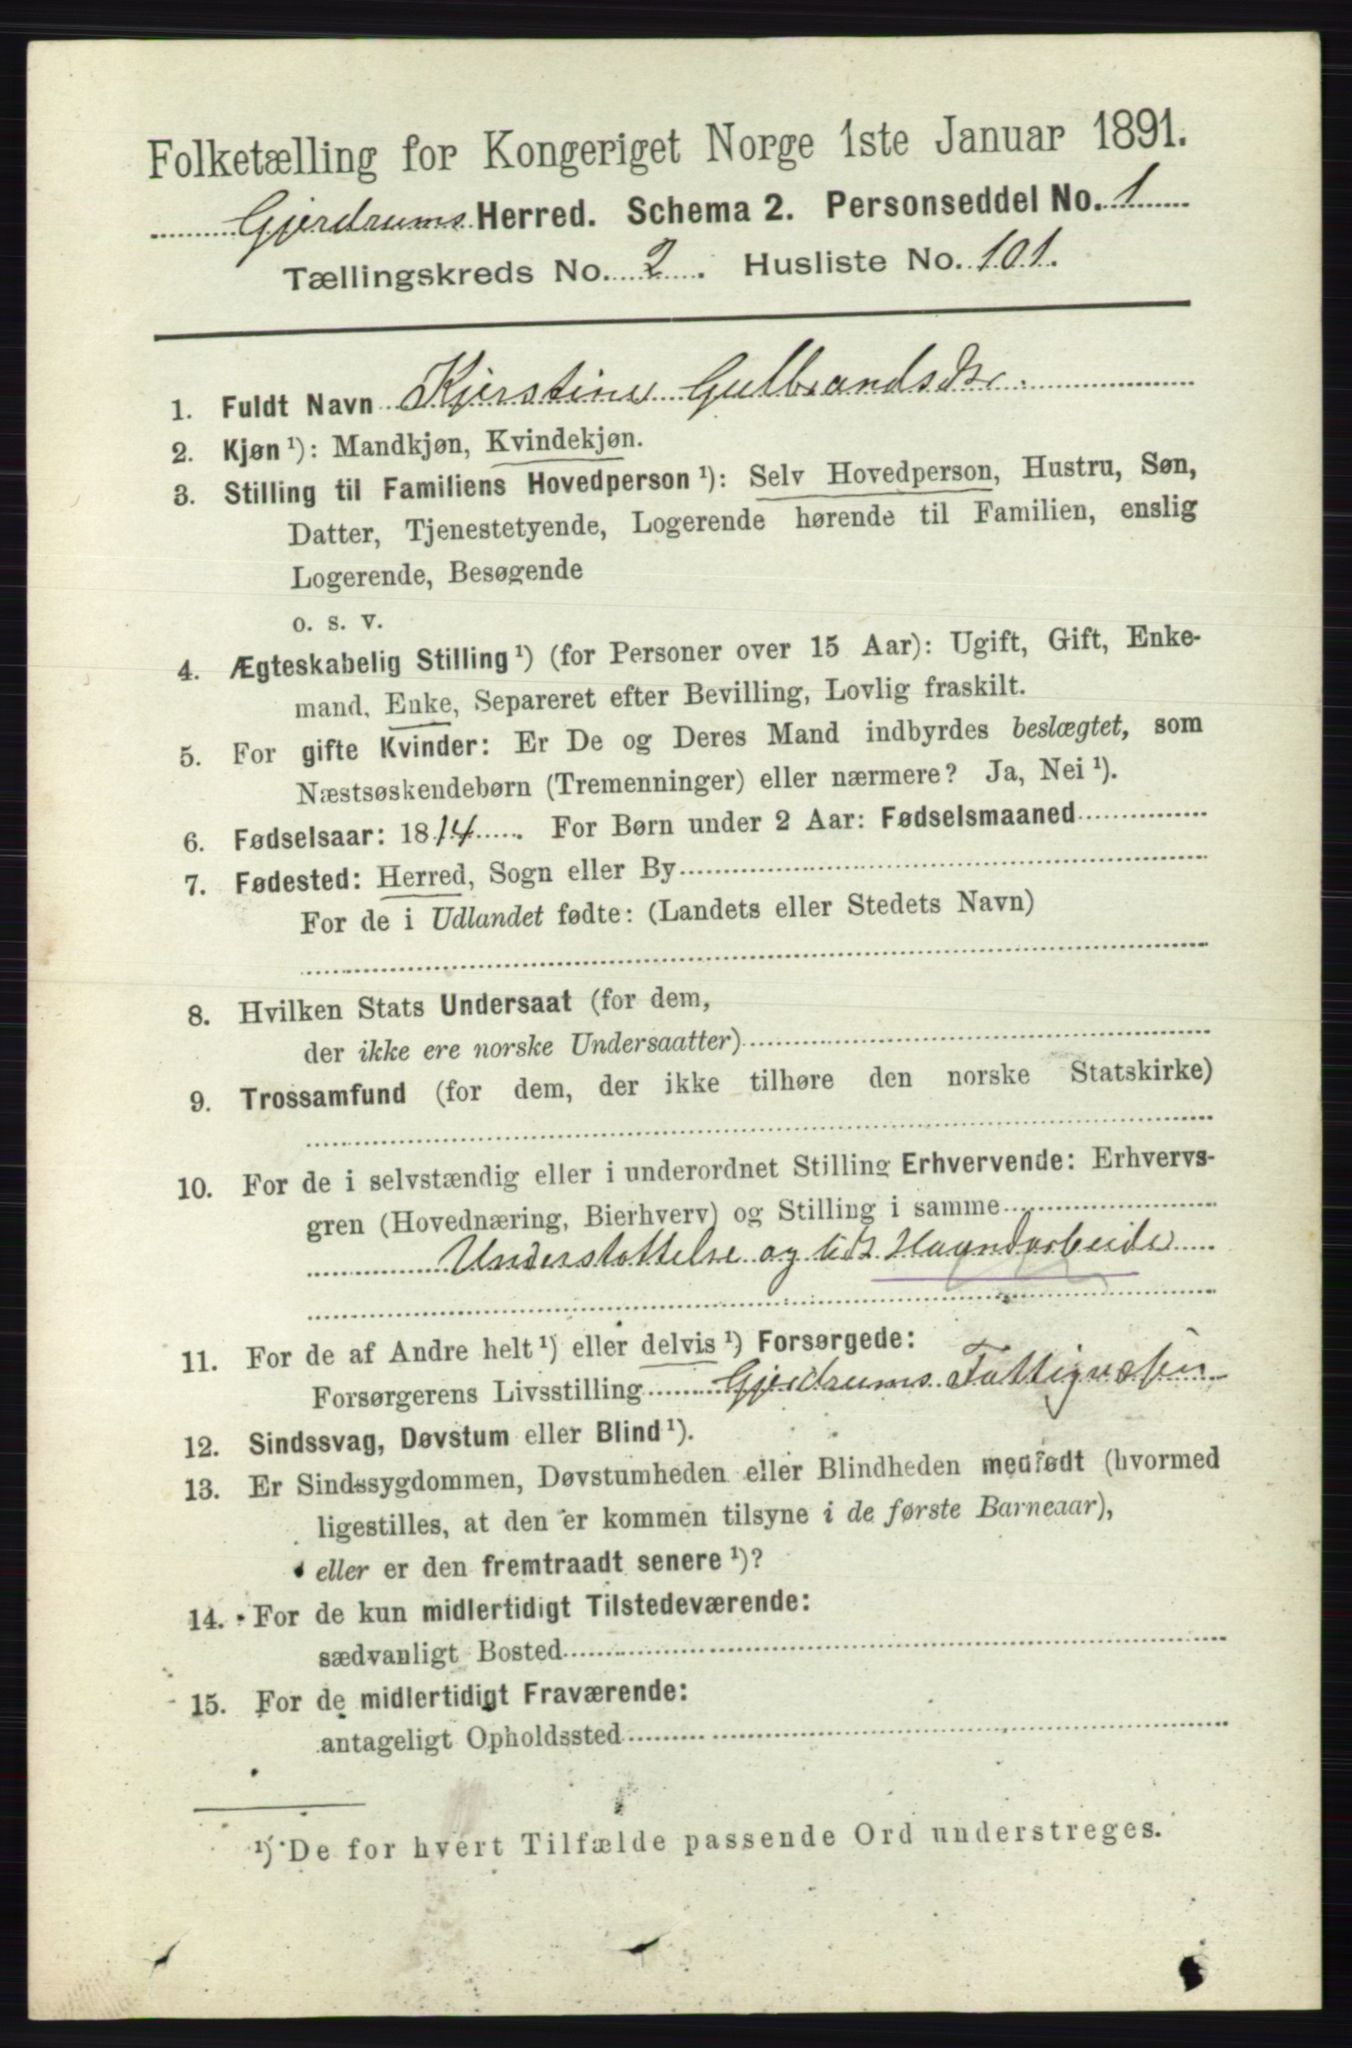 Folketælling for Kongeriget Norge 1ste Januar 1891.
Gjerdrums Herred. Schema 2. Personseddel No. 1
Tællingskreds No. 2. Husliste No. 101.
1. Fuldt Navn Kjerstine Gulbrandsdr.
2. Kjøn ¹): Mandkjøn, Kvindekjøn.
3. Stilling til Familiens Hovedperson ¹): Selv Hovedperson, Hustru, Søn,
Datter, Tjenestetyende, Logerende hørende til Familien, enslig
Logerende, Besøgende
o. s. v.
4. Ægteskabelig Stilling ¹) (for Personer over 15 Aar): Ugift, Gift, Enke-
mand, Enke, Separeret efter Bevilling, Lovlig fraskilt.
5. For gifte Kvinder: Er De og Deres Mand indbyrdes beslægtet, som
Næstsøskendebørn (Tremenninger) eller nærmere? Ja, Nei ¹).
6. Fødselsaar: 1814. For Børn under 2 Aar: Fødselsmaaned
7. Fødested: Herred, Sogn eller By
For de i Udlandet fødte: (Landets eller Stedets Navn)
8. Hvilken Stats Undersaat (for dem,
der ikke ere norske Undersaatter)
9. Trossamfund (for dem, der ikke tilhøre den norske Statskirke)
10. For de i selvstændig eller i underordnet Stilling Erhvervende: Erhvervs-
gren (Hovednæring, Bierhverv) og Stilling i samme
Understøttelse og lidt Haandarbeide
11. For de af Andre helt ¹) eller delvis ¹) Forsørgede:
Forsørgerens Livsstilling Gjerdrums Fattigvæsen
12. Sindssvag, Døvstum eller Blind ¹).
13. Er Sindssygdommen, Døvstumheden eller Blindheden medfødt (hvormed
ligestilles, at den er kommen tilsyne i de første Barneaar),
eller er den fremtraadt senere ¹)?
14. For de kun midlertidigt Tilstedeværende:
sædvanligt Bosted
15. For de midlertidigt Fraværende:
antageligt Opholdssted
¹) De for hvert Tilfælde passende Ord understreges.